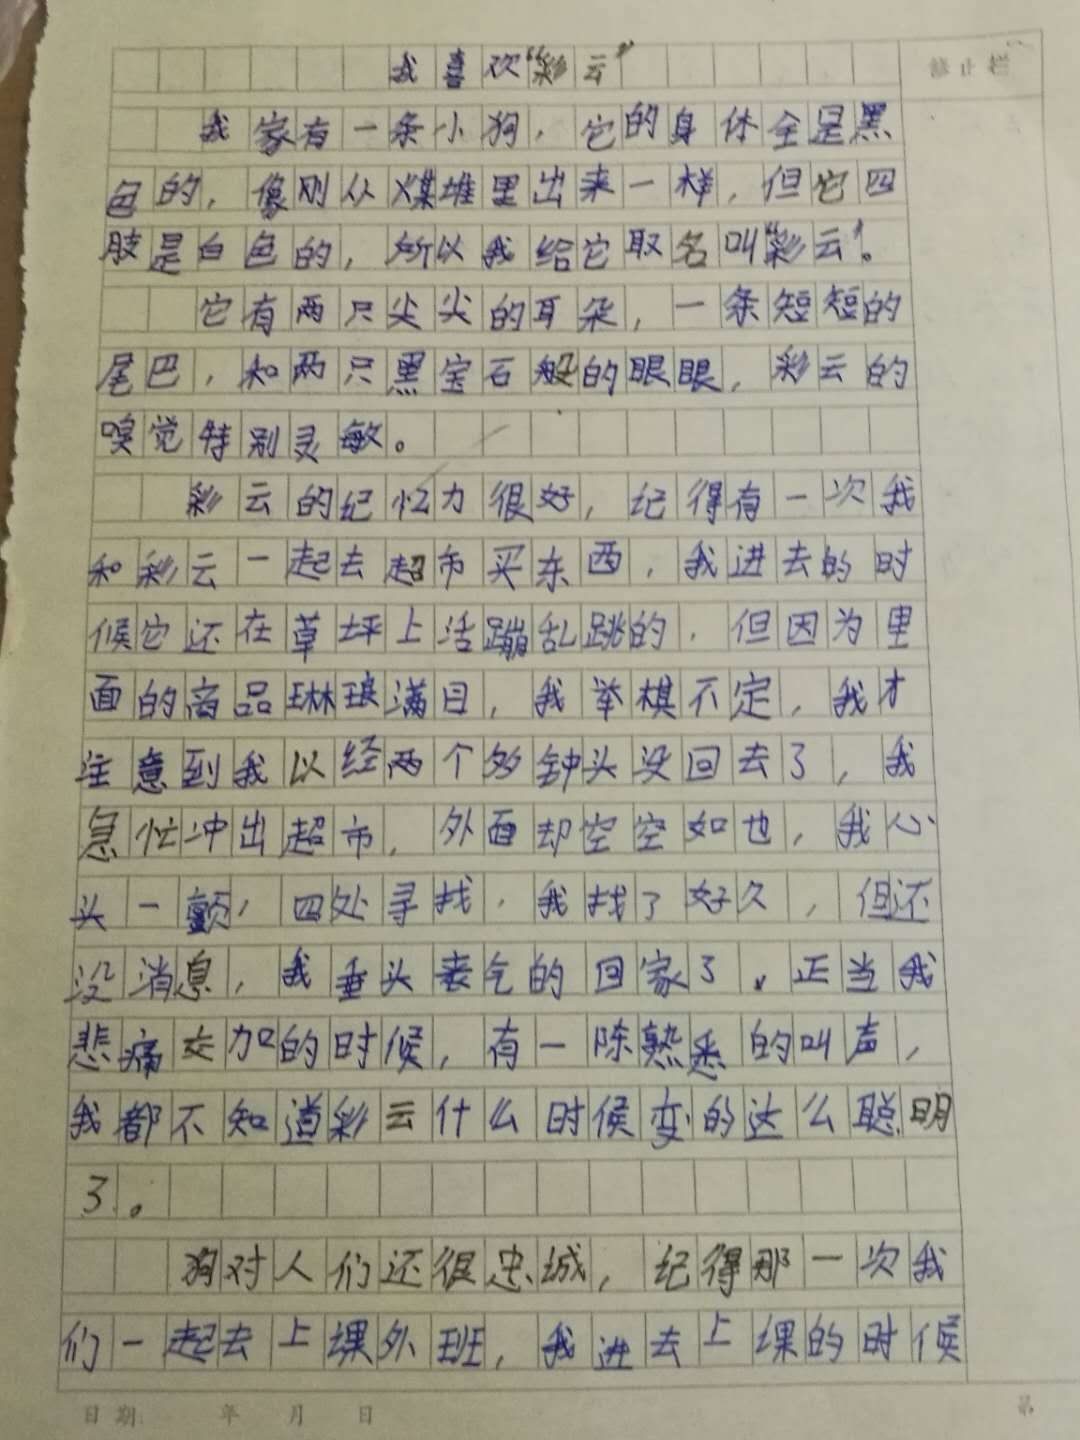 我喜欢“彩云”
修正栏
我家有一条小狗，它的身体全是黑
色的，像刚从煤堆里出来一样，但它四
肢是白色的，所以我给它取名叫“彩云”。
它有两只尖尖的耳朵，一条短短的
尾巴，和两只黑宝石般的眼眼，彩云的
嗅觉特别灵敏。
彩云的纪忆力很好，纪得有一次我
和彩云一起去超市买东西，我进去的时
候它还在草坪上活蹦乱跳的，但因为里
面的商品琳琅满目，我举棋不定，我才
注意到我以经两个多钟头没回去了，我
急忙冲出超市，外面却空空如也，我心
头一颤，四处寻找，我找了好久，但还
没消息，我垂头丧气的回家了。正当我
悲痛交加的时候，有一陈熟悉的叫声，
我都不知道彩云什么时候变的这么聪明
了。
狗对人们还很忠城，纪得那一次我
们一起去上课外班，我进去上课的时候
日期 年 月 日 第